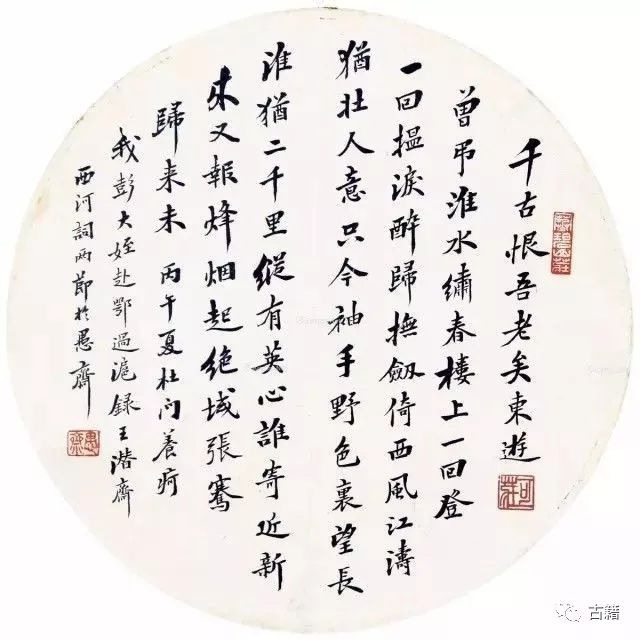 千古恨吾老矣東遊
曾弔淮水繡春樓上一回登
一回揾淚醉歸撫劔倚西風江濤
猶壯人意只今袖手野色裏望長
淮猶二千里縱有英心誰寄近新
來又報烽烟起絶域張騫
歸来未 丙午夏杜门養疴
我彭大姪赴鄂過滬録王潜齋
西河詞兩節於愚齋
愚齋
古籍